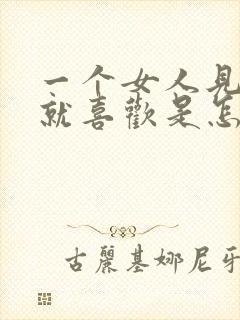 一个女人见
就喜歡是怎
古麗基娜尼牙